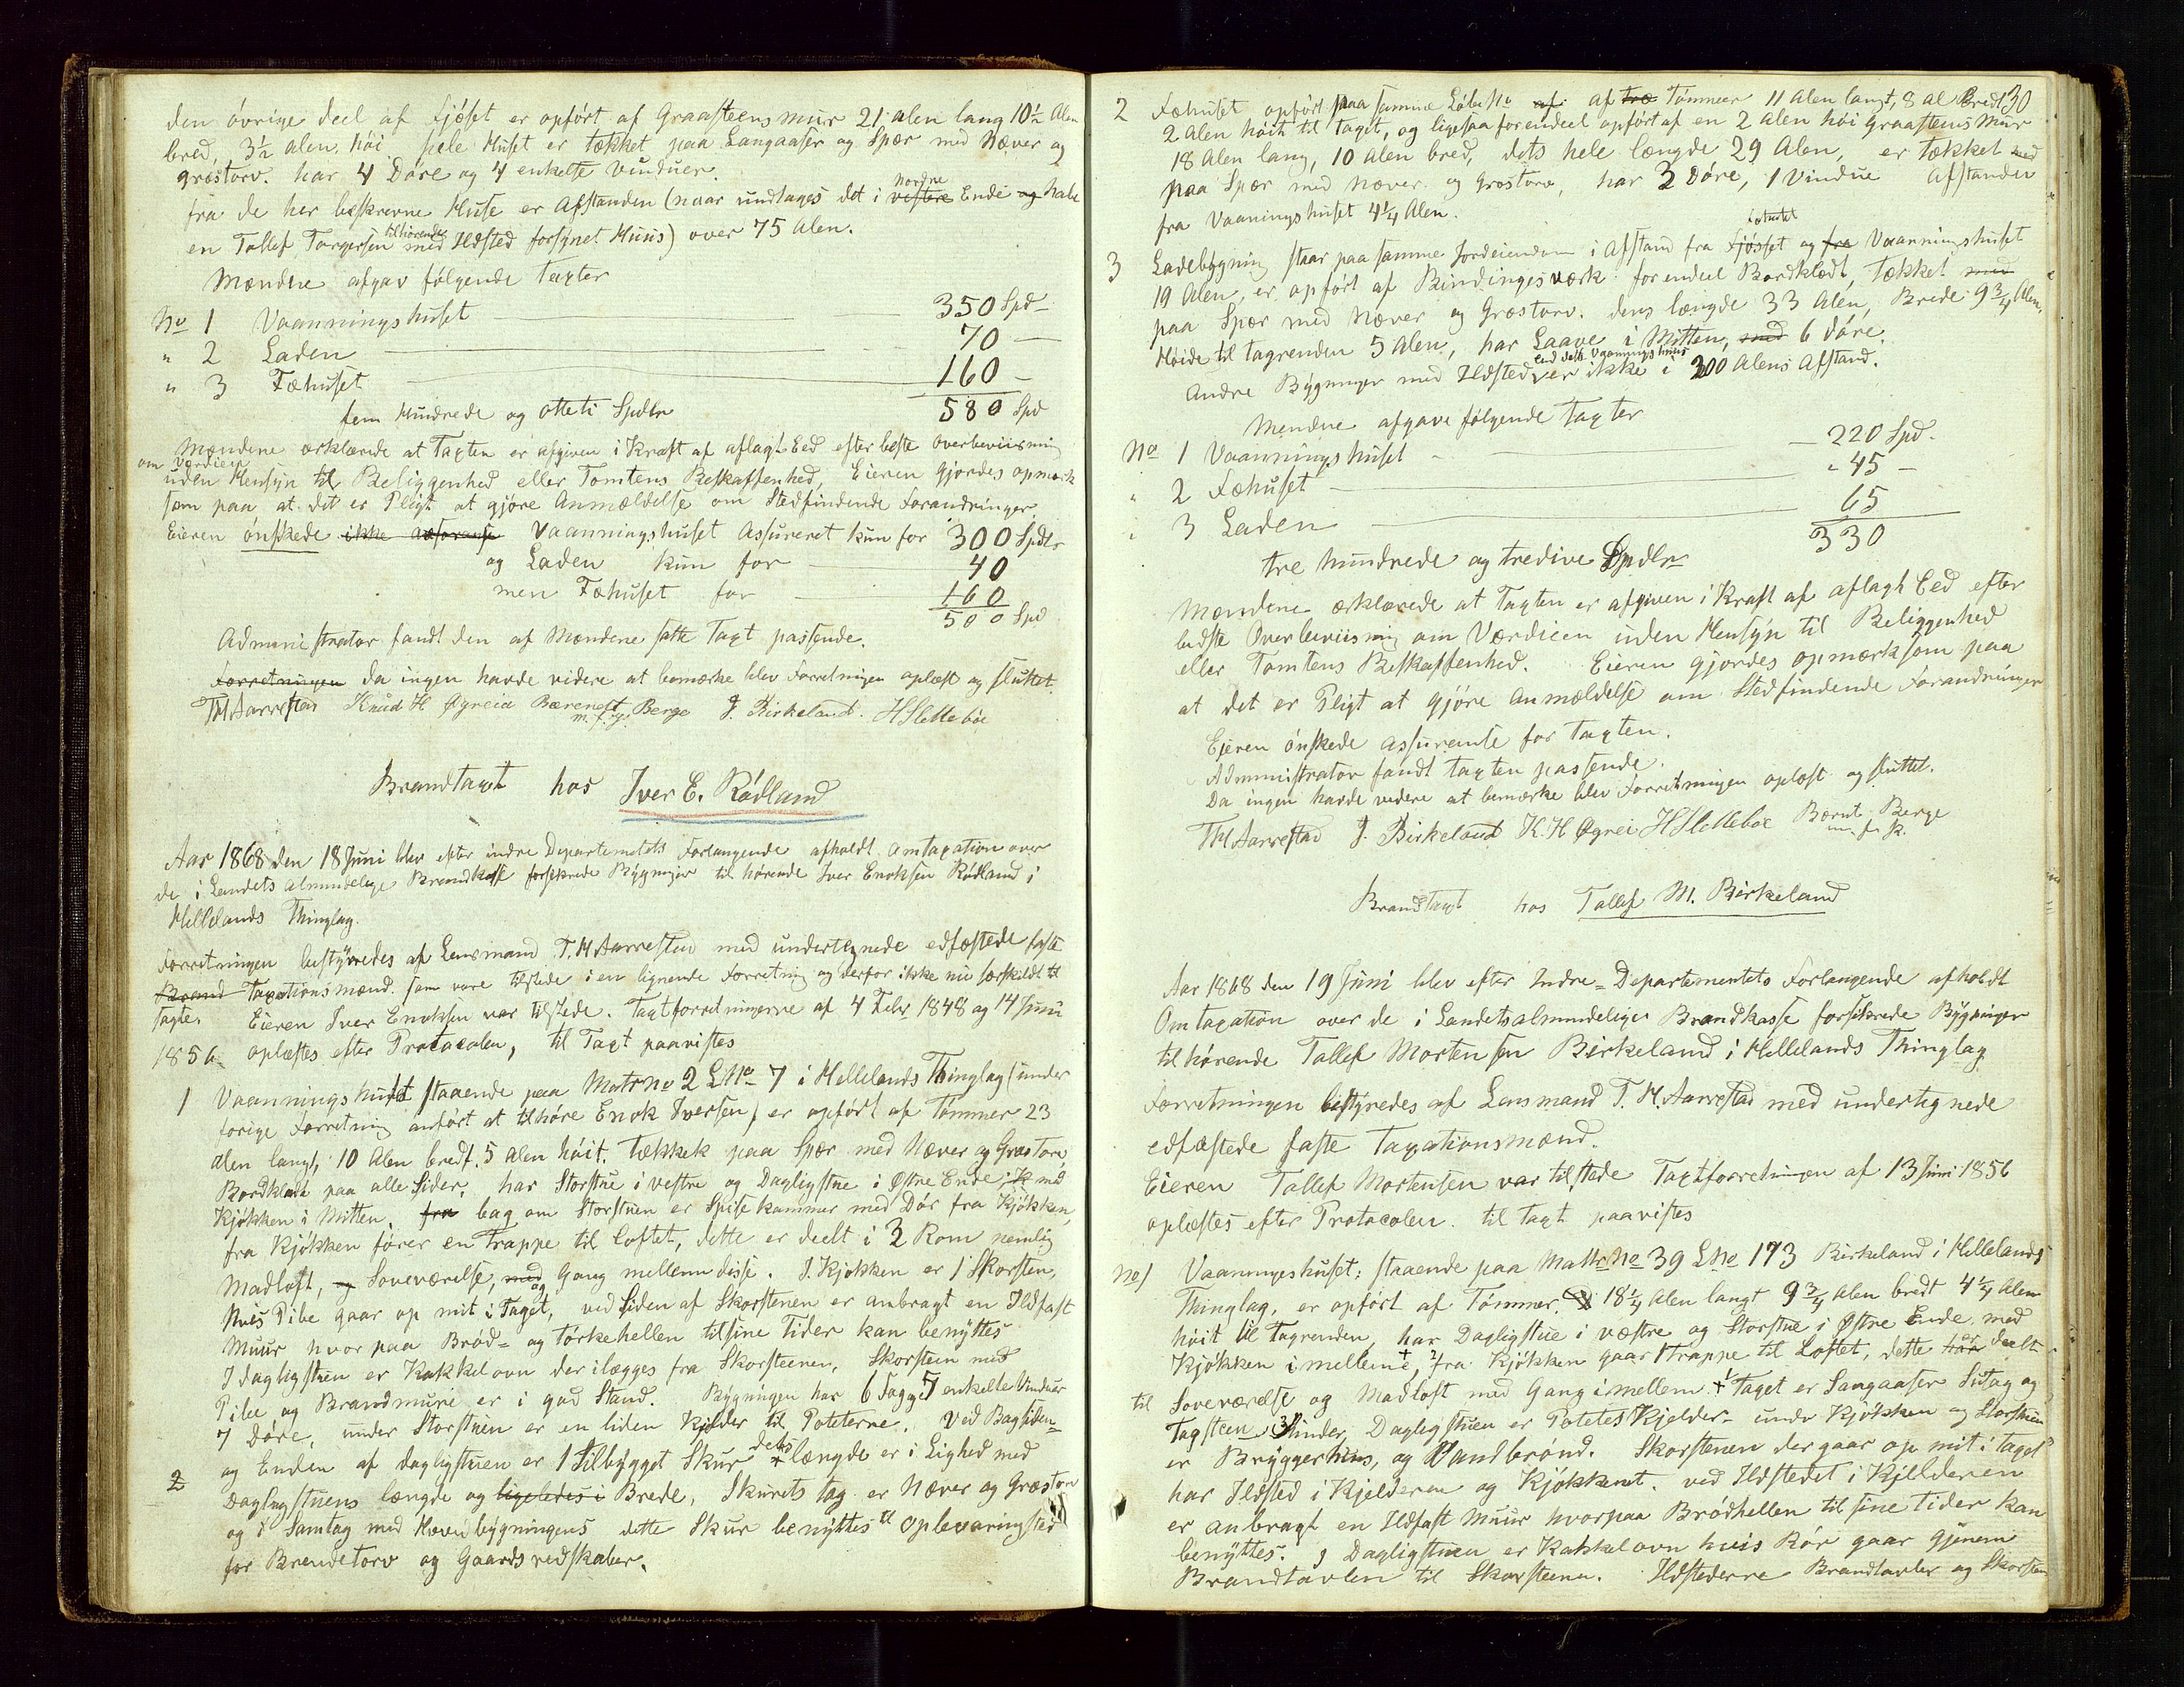 den övrige deel af Fjöset er opfört af Graasteensmur 21 alen lang 10½ Alen
bred, 3½ alen höi, hele Huset er tækket paa Langaaser og Spær med Næver og
græstorv. har 4 Döre og 4 enkelte Vinduer.
fra de her beskrevne Huse er Afstanden (naar undtages det i vestre nordre Ende og halv
en Tollef Torgersen tilhörende med Ildsted forsÿnet Huus) over 75 Alen.
Mændene afgav fölgende Taxter
No 1 Vaaningshuset 350 Spd
" 2 Laden 70
" 3 Fæhuset 160
fem Hundrede og otteti Spdlr 580 Spd
Mændene erklærede at Taxten er afgiven i Kraft af aflagt Eed efter beste Overbeviisning
om Værdien
uden Hensÿn til Beliggenhed eller Tomtens Beskaffenhed, Eieren gjordes opmærk
som paa at det er Pligt at gjöre Anmældelse om Stedfindende Forandringer
Eieren önskede ikke Vaaningshuset Assureret kun for 300 Spdlr
og Laden kun for 40
men Fæhuset for 160
500 Spd
Administrator fandt den af Mændene satte Taxt passende.
Forretningen Da ingen havde videre at bemærke blev Forretningen oplæst og sluttet.
TH Aarrestad Knud H Øgreid Bærent Berge J. Birkeland. H Sletteböe
m. f. p.
Brandtaxt hos Iver E. Rödland
Aar 1868 den 18 Juni blev efter indre Departemetets Forlangende afholdt Omtaxation over
de i Landets almindelige Brandkasse forsikrede Bÿgninger til hörende Iver Enoksen Rödland i
Hellelands Thinglag.
Forretningen bestÿredes af Lensmand T. H. Aarrestad med undertegnede edfæstede faste
Brand Taxationsmænd. som vare tilstede i en lignende Forretning og derfor ikke nu særskildt til
sagte. Eieren Iver Enoksen var tilstede. Taxtforretningerne af 4 Febr 1848 og 14 Juni
1856 oplæstes efter Protocolen, til Taxt paavistes
1 Vaaningshuset staaende paa Matr no 2 LNo 7 i Hellelands Thinglag (under
forige Forretning anfört at tilhöre Enok Iversen) er opfört af Tömmer 23
Alen langt, 10 Alen bredt. 5 Alen höit. Tækkek paa Spær med Næver og Græstorv,
Bordklædt paa alle Sider, har Storstue i vestre og Dagligstue i Østre Ende, med
Kjökken i Mitten. fra bag om Storstuen er Spisekammer med Dör fra Kjökken,
fra Kjökken förer en Trappe til Loftet, dette er deelt i 3 Rom nemlig
Madloft, og Soveværelse, med og Gang mellem disse. I Kjökken er 1 Skorsten,
hvis Pibe gaar op mit i Taget, ved Siden af Skorstenen er anbragt en Ildfast
Muur hvor paa Bröd- og Törkehellen til sine Tider kan benÿttes
I dagligstuen er Kakkelovn der ilægges fra Skorsteenen, Skorsteen med
Pibe og Brandmure er i god Stand. Bÿgningen har 6 Fagge 7 enkelte Vinduer
7 Döre, under Storstuen er en liden Kjelder til Poteterne. Ved Bagsiden
2 og Enden af dagligstuen er 1 Tilbÿgget Skur dets længde er i Lighed med
Dagligstuens længde og ligeledes i Brede, Skurets tag er Næver og Græstorv
og i Samtag med Hovedbÿgningens dette Skur benÿttes til Oplevaringsted
for Brendetorv og Gaardsredskaber.
30
2 Fæhuset opfört paa samme Löbe No af Tömmer 11 Alen langt, 8 al Bredt
2 Alen höit til Taget, og ligesaa forendeel opfört af en 2 Alen höi Graastens Mur
18 Alen lang, 10 Alen bred, dets hele længde 29 Alen, er tækket med
paa Spær med Næver og Græstorv, har 3 Döre, 1 Vindue Afstanden
fra Vaaningshuset 4¼ Alen.
3 Ladebÿgning staar paa samme Jordeiendom i Afstand fra Fjösset og fra Vaaningshuset
19 Alen, er opfört af Bindingsværk forendeel Bordklædt, Tækket med
paa Spær med Næver og Græstorv. dens længde 33 Alen, Brede 9¾ Alen,
Höide til tagrenden 5 Alen, har Laave i Mitten, med 6 Döre.
end dette Vaaningshuus
Andre Bÿgninger med Ildsted er ikke i 200 Alens Afstand.
Mendene afgave fölgende Taxter
No 1 Vaaningshuset 220 Spd.
" 2 Fæhuset 45
" 3 Laden 65
tre hundrede og tredive Spdlr 330
Mændene erklærede at Taxten er afgiven i Kraft af aflagt Eed efter
bedste Overbeviisning om Værdien uden Hensÿn til Beliggenhed
eller Tomtens Beskaffenhed. Eieren gjordes opmærksom paa
at det er Pligt at gjöre Anmældelse om Stedfindende Forandringer
Eieren önskede Assurente for Taxten.
Administrator fandt Taxten passende.
Da ingen havde videre at bemærke blev Forretningen oplæst og sluttet.
TH Aarrestad J. Birkeland K. H Øgrei H Sletteböe Bærnt Berge
m. f. p.
Brandtaxt hos Tollef M. Birkeland
Aar 1868 den 19 Juni blev efter Indre-Departementets Forlangende afholdt
Omtaxation over de i Landets almindelige Brandkasse forsikrede Bÿgninger
til hörende Tollef Mortensen Birkeland i Hellelands Thinglag.
Forretningen bestÿredes af Lensmand T. H. Aarrestad med undertegnede
edfæstede faste Taxationsmænd.
Eieren Tollef Mortensen var tilstede Taxtforretningen af 13 Juni 1856
oplæstes efter Protocolen. til Taxt paavistes
No 1 Vaaningshuset: staaende paa Mattr No 39 LNo 173 Birkeland i Hellelands
Thinglag, er opfört af Tömmer. 18¼ Alen langt 9¾ Alen bredt 4¼ Alen
höit til Tagrenden, har Dagligstue i væstre og Storstue i Østre Ende med
Kjökken i mellem, fra Kjökken gaar 1 Trappe til Loftet, dette har er deelt
til Soveværelse og Madloft med Gang imellem. Taget er Langaaser Sutag og
Tagsteen. Under Dagligstuen er Potetes Kjelder- under Kjökken og Storstuen
er Brÿggerhuus, og Vandbrönd. Skorstenen der gaar op mit i Taget
har Ildsted i Kjelderen og Kjökkenet. ved Ildstedet i Kjelderen
er anbragt en Ildfast Muur hvorpaa Brödhellen til sine Tider kan
benÿttes. I Dagligstuen er Kakkelovn hvis Rör gaar gjenem
Brandtavlen til Skorsteenen. Ildstederne Brandtavler og Skorsten